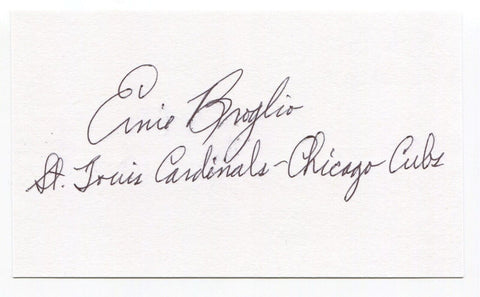 Ernie Broglio
St. Louis Cardinals - Chicago Cubs